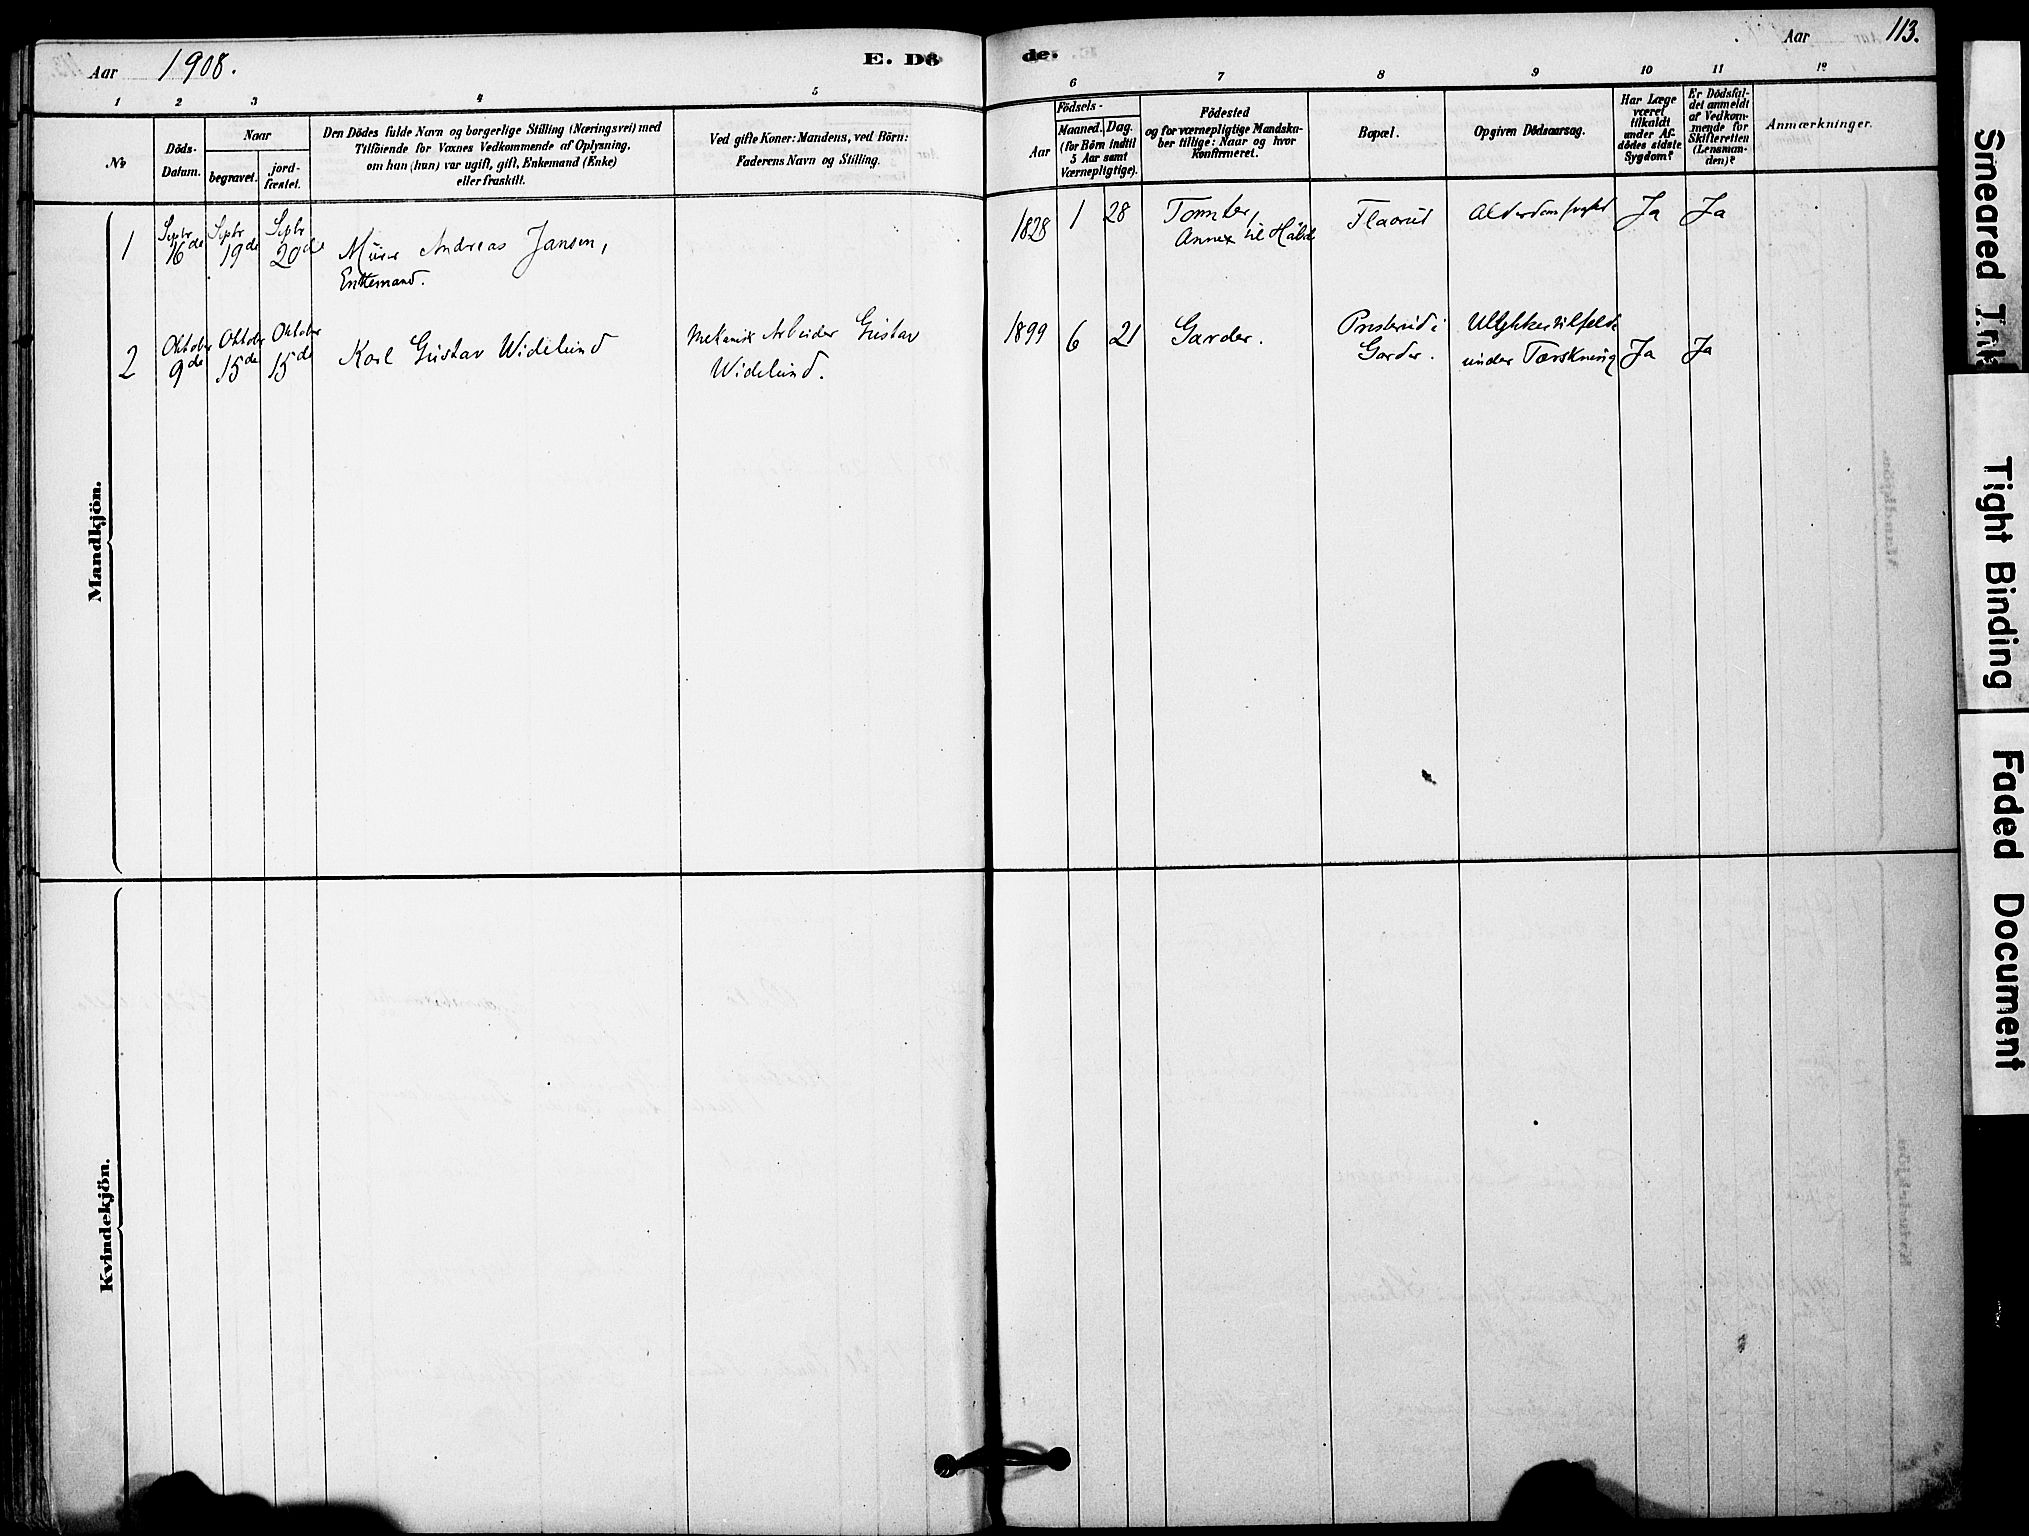 Aar 1908.
E. Dö
de.
Aar
113.
1 2 3 4 5
6 7 8 9 10 11 12
No
Döds-
Datum.
Naar
begravet.
jord-
fæstet.
Den Dödes fulde Navn og borgerlige Stilling (Næringsvei) med
Tilföiende for Voxnes Vedkommende af Oplysning,
om han (hun) var ugift, gift, Enkemand (Enke)
eller fraskilt.
Ved gifte Koner: Mandens, ved Börn:
Faderens Navn og Stilling.
Födsels-
Aar
Maaned.
Dag.
(for Börn indtil
5 Aar samt
Værnepligtige).
Födested
og for værnepligtige Mandska-
ber tillige: Naar og hvor
Konfirmeret.
Bopæl.
Opgiven Dödsaarsag.
Har Læge
været
tilkaldt
under Af-
dödes sidste
Sygdom?
Er Dödsfal-
det anmeldt
af Vedkom-
mende for
Skifteretten
(Lensman-
den)?
Anmærkninger.
Mandkjön.
1
Septbr
16de
Septbr
19de
Septbr
20de
Murer Andreas Jansen,
Enkemand.
1828 1 28
Tomter,
Annex til Håbøl
Flaarud
Alderdomssvaghed
Ja Ja
2
Oktober
9de
Oktober
15de
Oktober
15de
Karl Gustav Widelund
Mekanisk Arbeider Gustav
Widelund.
1899 6 21
Garder.
Presterud i
Garder.
Ulykkestilfelde
under Tærskning
Ja Ja
Kvindekjön.
Smeared Ink
Tight Binding
Faded Document